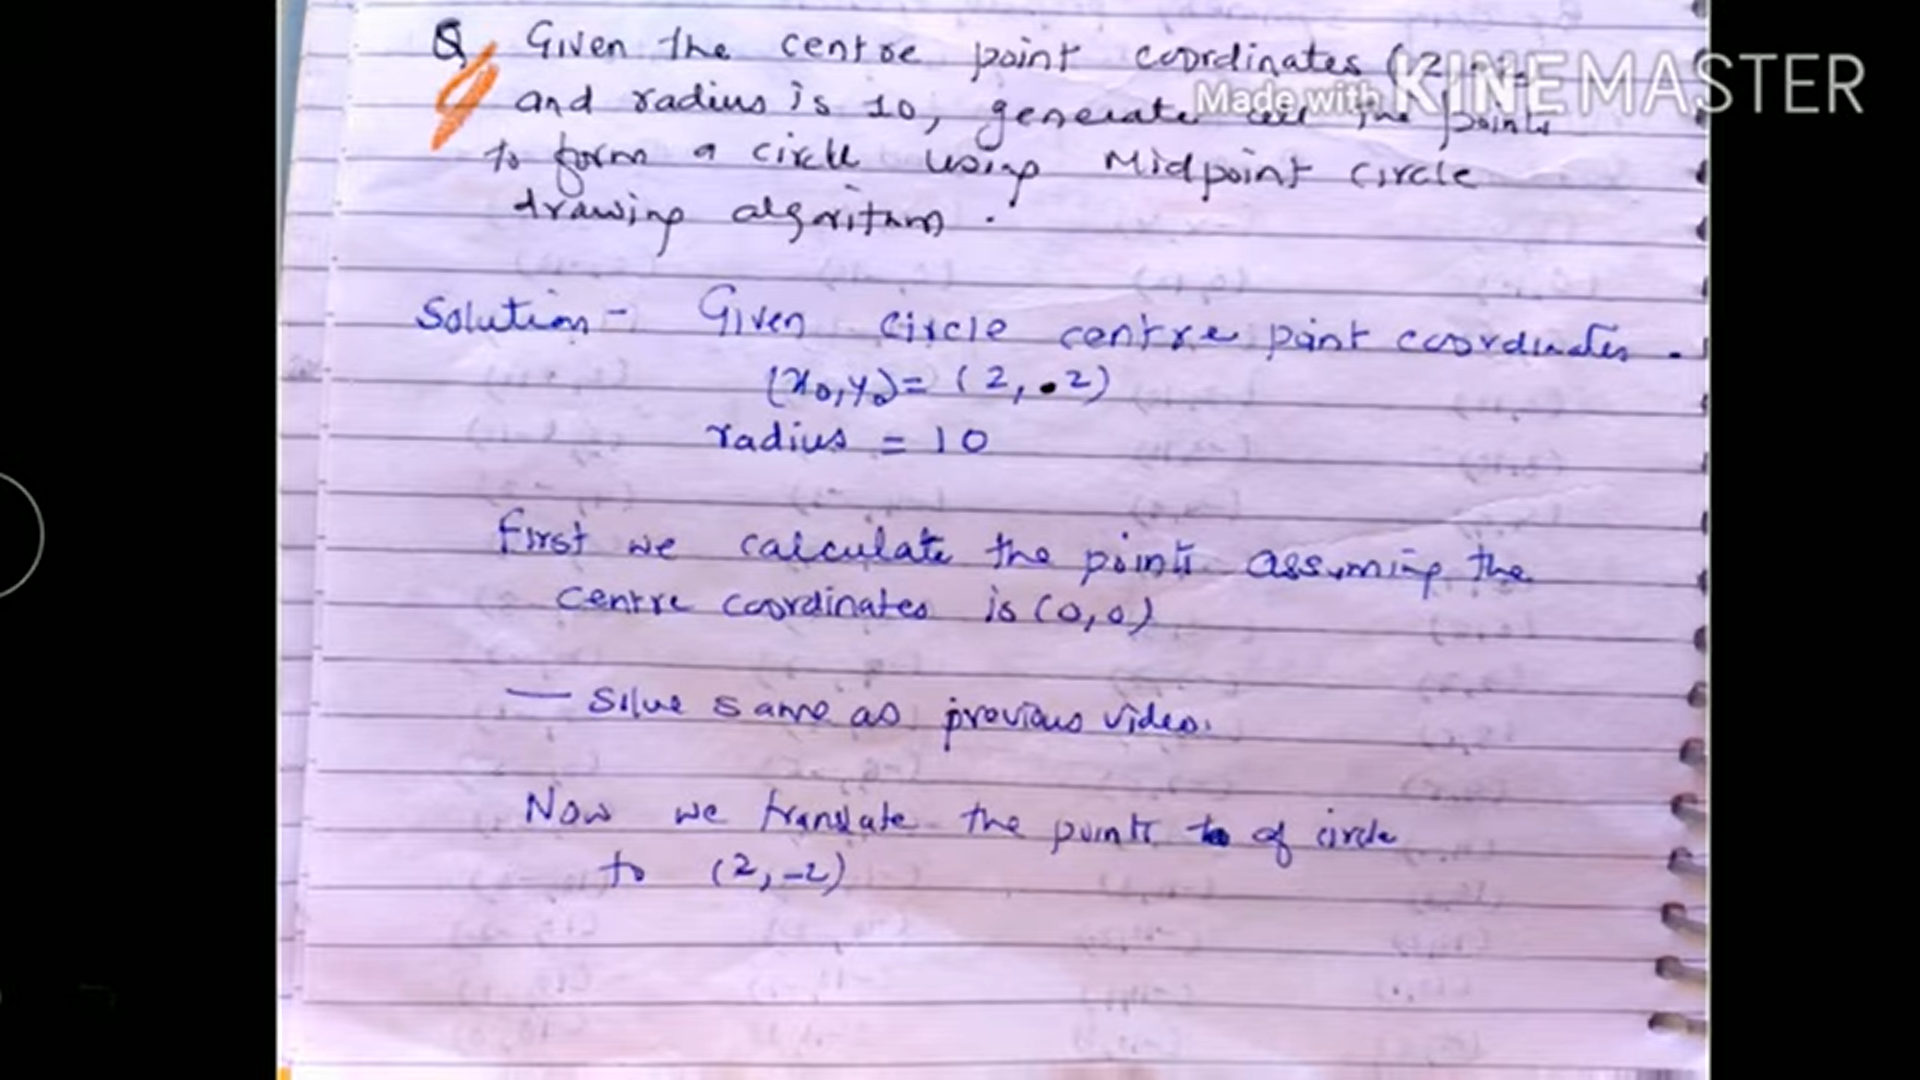 Q Given the centre point coordinates (2
Made with KINEMASTER
and radius is 10, generate all the points
to form a circle using Midpoint circle
drawing algorithm.
Solution- Given circle centre point coordinates.
(x0,y0)= (2, •2)
radius = 10
First we calculate the points assuming the
centre coordinates is (0,0)
— Solve same as previous video.
Now we translate the points to of circle
to (2,-2)